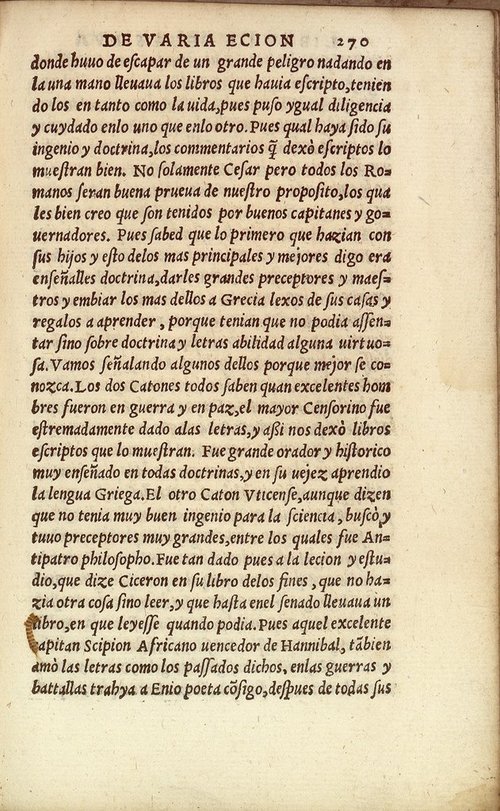 DE VARIA ECION 270
donde huuo de escapar de un grande peligro nadando en
la una mano lleuaua los libros que hauia escripto,tenien
do los en tanto como la uida,pues puso ygual diligencia
y cuydado enlo uno que enlo otro. Pues qual haya sido su
ingenio y doctrina,los commentarios q̃ dexò escriptos lo
muestran bien. No solamente Cesar pero todos los Ro=
manos seran buena prueua de nuestro proposito,los qua
les bien creo que son tenidos por buenos capitanes y go=
uernadores. Pues sabed que lo primero que hazian con
sus hijos y esto delos mas principales y mejores digo era
enseñalles doctrina,darles grandes preceptores y maes=
tros y embiar los mas dellos a Grecia lexos de sus casas y
regalos a aprender, porque tenian que no podia assen=
tar sino sobre doctrina y letras abilidad alguna uirtuo=
sa. Vamos señalando algunos dellos porque mejor se co=
nozca. Los dos Catones todos saben quan excelentes hom
bres fueron en guerra y en paz,el mayor Censorino fue
estremadamente dado alas letras, y aßi nos dexò libros
escriptos que lo muestran. Fue grande orador y historico
muy enseñado en todas doctrinas, y en su uejez aprendio
la lengua Griega. El otro Caton Vticense,aunque dizen
que no tenia muy buen ingenio para la sciencia, buscò,y
tuuo preceptores muy grandes,entre los quales fue An=
tipatro philosopho. Fue tan dado pues a la lecion y estu=
dio,que dize Ciceron en su libro delos fines, que no ha=
zia otra cosa sino leer, y que hasta enel senado lleuaua un
libro,en que leyesse quando podia. Pues aquel excelente
capitan Scipion Africano uencedor de Hannibal, tãbien
amò las letras como los passados dichos, enlas guerras y
battallas trahya a Enio poeta cõsigo,despues de todas sus